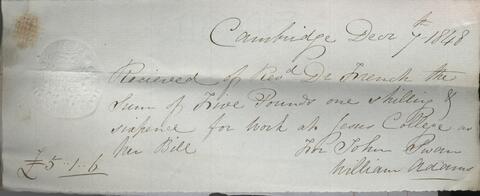 Cambridge Decr 7th 1848
Recieved of Revd Dr French the
Sum of Five Pounds one shilling &
sixpence for Work at Jesus College as
per Bill For John Swan
£5..1..6 William Adams